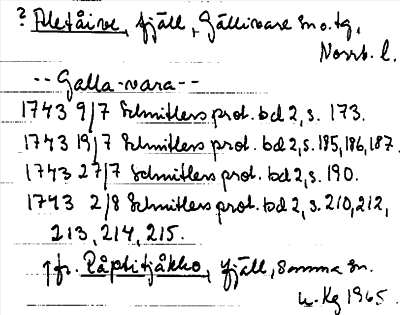 ? Aletåive, fjäll, Gällivare sn o. tg,
Norrb. l.
-- Galla-vara --
1743 9/7 Schnitlers prot. bd 2, s. 173.
1743 19/7 Schnitlers prot. bd 2, s. 185, 186, 187.
1743 27/7 Schnitlers prot. bd 2, s. 190.
1743 2/8 Schnitlers prot. bd 2, s. 210, 212,
213, 214, 215.
jfr. Påptitjåkko, fjäll, samma sn.
Kg 1965.